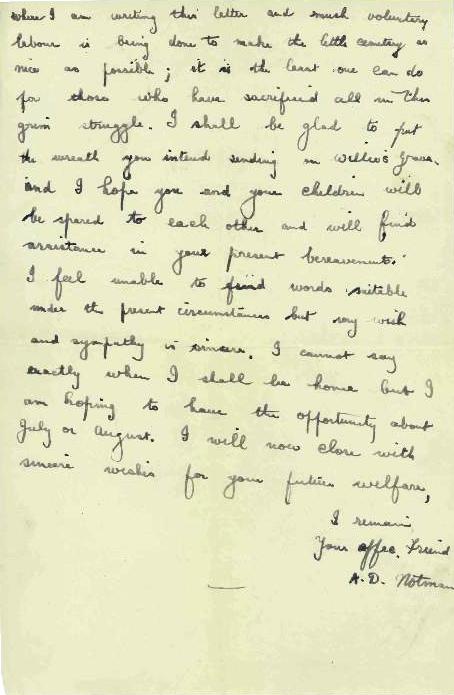 where I am writing this letter and much voluntary
labour is being done to make the little cemetery as
nice as possible; it is the least one can do
for those who have sacrificed all in this
grim struggle. I shall be glad to put
the wreath you intend sending on Willie's grave.
and I hope you and your children will
be spared to each other and will find
assistance in your present bereavement.
I feel unable to find words suitable
under the present circumstances but my wish
and sympathy is sincere. I cannot say
exactly when I shall be home but I
am hoping to have the opportunity about
July or August. I will now close with
sincere wishes for your future welfare,
I remain
Your affec. Friend
A. D. Notman